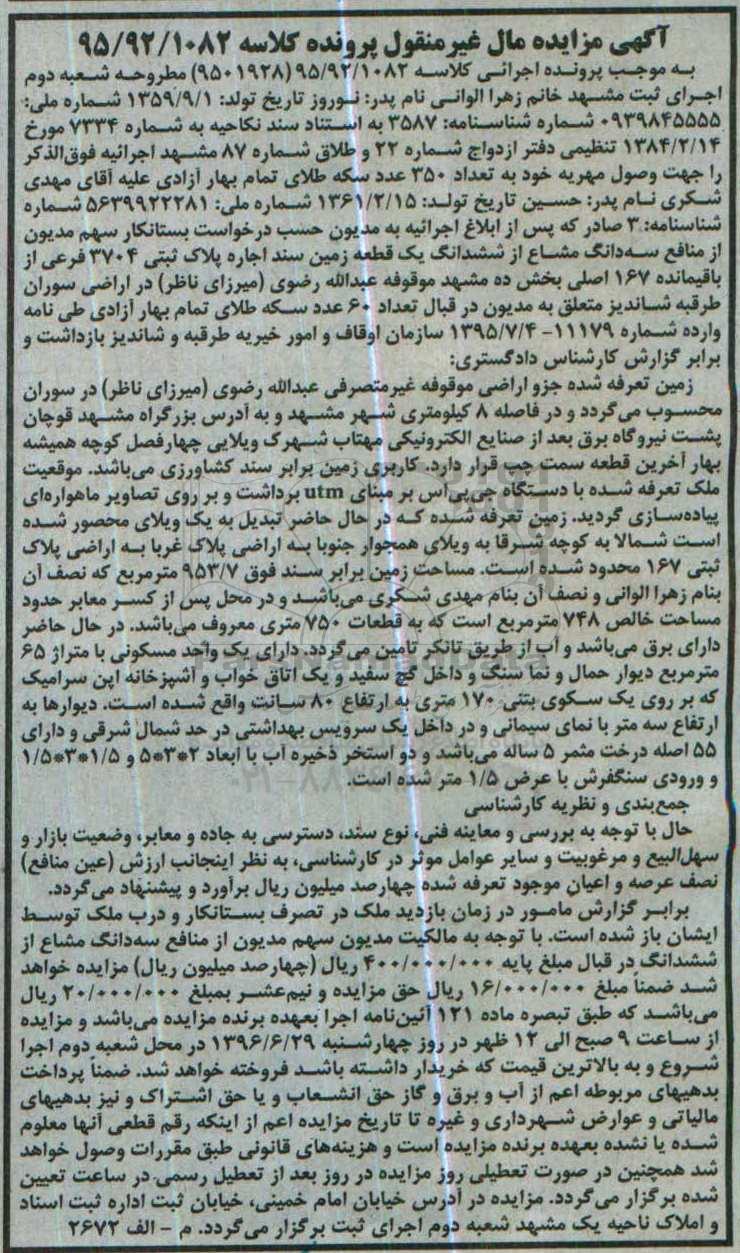 آگهی مزایده مال غیرمنقول پرونده کلاسه ۹۵/۹۲/۱۰۸۲
به موجب پرونده اجرائی کلاسه ۹۵/۹۲/۱۰۸۲ (۹۵۰۱۹۲۸) مطروحه شعبه دوم
اجرای ثبت مشهد خانم زهرا الوانی نام پدر: نوروز تاریخ تولد: ۱۳۵۹/۹/۱ شماره ملی:
۰۹۳۹۸۴۵۵۵۵ شماره شناسنامه: ۳۵۸۷ به استناد سند نکاحیه به شماره ۷۳۳۴ مورخ
۱۳۸۴/۲/۱۴ تنظیمی دفتر ازدواج شماره ۲۲ و طلاق شماره ۸۷ مشهد اجرائیه فوق‌الذکر
را جهت وصول مهریه خود به تعداد ۳۵۰ عدد سکه طلای تمام بهار آزادی علیه آقای مهدی
شکری نام پدر: حسین تاریخ تولد: ۱۳۶۱/۲/۱۵ شماره ملی: ۵۶۳۹۹۲۲۲۸۱ شماره
شناسنامه: ۳ صادر که پس از ابلاغ اجرائیه به مدیون حسب درخواست بستانکار سهم مدیون
از منافع سه‌دانگ مشاع از ششدانگ یک قطعه زمین سند اجاره پلاک ثبتی ۳۷۰۴ فرعی از
باقیمانده ۱۶۷ اصلی بخش ده مشهد موقوفه عبدالله رضوی (میرزای ناظر) در اراضی سوران
طرقبه شاندیز متعلق به مدیون در قبال تعداد ۶۰ عدد سکه طلای تمام بهار آزادی طی نامه
وارده شماره ۱۱۱۷۹- ۱۳۹۵/۷/۴ سازمان اوقاف و امور خیریه طرقبه و شاندیز بازداشت و
برابر گزارش کارشناس دادگستری:
زمین تعرفه شده جزو اراضی موقوفه غیرمتصرفی عبدالله رضوی (میرزای ناظر) در سوران
محسوب می‌گردد و در فاصله ۸ کیلومتری شهر مشهد و به آدرس بزرگراه مشهد قوچان
پشت نیروگاه برق بعد از صنایع الکترونیکی مهتاب شهرک ویلایی چهارفصل کوچه همیشه
بهار آخرین قطعه سمت چپ قرار دارد. کاربری زمین برابر سند کشاورزی می‌باشد. موقعیت
ملک تعرفه شده با دستگاه جی‌پی‌اس بر مبنای utm برداشت و بر روی تصاویر ماهواره‌ای
پیاده‌سازی گردید. زمین تعرفه شده که در حال حاضر تبدیل به یک ویلای محصور شده
است شمالا به کوچه شرقا به ویلای همجوار جنوبا به اراضی پلاک غربا به اراضی پلاک
ثبتی ۱۶۷ محدود شده است. مساحت زمین برابر سند فوق ۹۵۳/۷ مترمربع که نصف آن
بنام زهرا الوانی و نصف آن بنام مهدی شکری می‌باشد و در محل پس از کسر معابر حدود
مساحت خالص ۷۴۸ مترمربع است که به قطعات ۷۵۰ متری معروف می‌باشد. در حال حاضر
دارای برق می‌باشد و آب از طریق تانکر تامین می‌گردد. دارای یک واحد مسکونی با متراژ ۶۵
مترمربع دیوار حمال و نما سنگ و داخل گچ سفید و یک اتاق خواب و آشپزخانه اپن سرامیک
که بر روی یک سکوی بتنی ۱۷۰ متری به ارتفاع ۸۰ سانت واقع شده است. دیوارها به
ارتفاع سه متر با نمای سیمانی و در داخل یک سرویس بهداشتی در حد شمال شرقی و دارای
۵۵ اصله درخت مثمر ۵ ساله می‌باشد و دو استخر ذخیره آب با ابعاد ۲*۳*۵ و ۱/۵*۳*۱/۵
و ورودی سنگفرش با عرض ۱/۵ متر شده است.
جمع‌بندی و نظریه کارشناسی
حال با توجه به بررسی و معاینه فنی، نوع سند، دسترسی به جاده و معابر، وضعیت بازار و
سهل‌البیع و مرغوبیت و سایر عوامل موثر در کارشناسی، به نظر اینجانب ارزش (عین منافع)
نصف عرصه و اعیان موجود تعرفه شده چهارصد میلیون ریال برآورد و پیشنهاد می‌گردد.
برابر گزارش مامور در زمان بازدید ملک در تصرف بستانکار و درب ملک توسط
ایشان باز شده است. با توجه به مالکیت مدیون سهم مدیون از منافع سه‌دانگ مشاع از
ششدانگ در قبال مبلغ پایه ۴۰۰/۰۰۰/۰۰۰ ریال (چهارصد میلیون ریال) مزایده خواهد
شد ضمناً مبلغ ۱۶/۰۰۰/۰۰۰ ریال حق مزایده و نیم‌عشر بمبلغ ۲۰/۰۰۰/۰۰۰ ریال
می‌باشد که طبق تبصره ماده ۱۲۱ آئین‌نامه اجرا بعهده برنده مزایده می‌باشد و مزایده
از ساعت ۹ صبح الی ۱۲ ظهر در روز چهارشنبه ۱۳۹۶/۶/۲۹ در محل شعبه دوم اجرا
شروع و به بالاترین قیمت که خریدار داشته باشد فروخته خواهد شد. ضمناً پرداخت
بدهیهای مربوطه اعم از آب و برق و گاز حق انشعاب و یا حق اشتراک و نیز بدهیهای
مالیاتی و عوارض شهرداری و غیره تا تاریخ مزایده اعم از اینکه رقم قطعی آنها معلوم
شده یا نشده بعهده برنده مزایده است و هزینه‌های قانونی طبق مقررات وصول خواهد
شد همچنین در صورت تعطیلی روز مزایده در روز بعد از تعطیل رسمی در ساعت تعیین
شده برگزار می‌گردد. مزایده در آدرس خیابان امام خمینی، خیابان ثبت اداره ثبت اسناد
و املاک ناحیه یک مشهد شعبه دوم اجرای ثبت برگزار می‌گردد. م - الف ۲۶۷۲